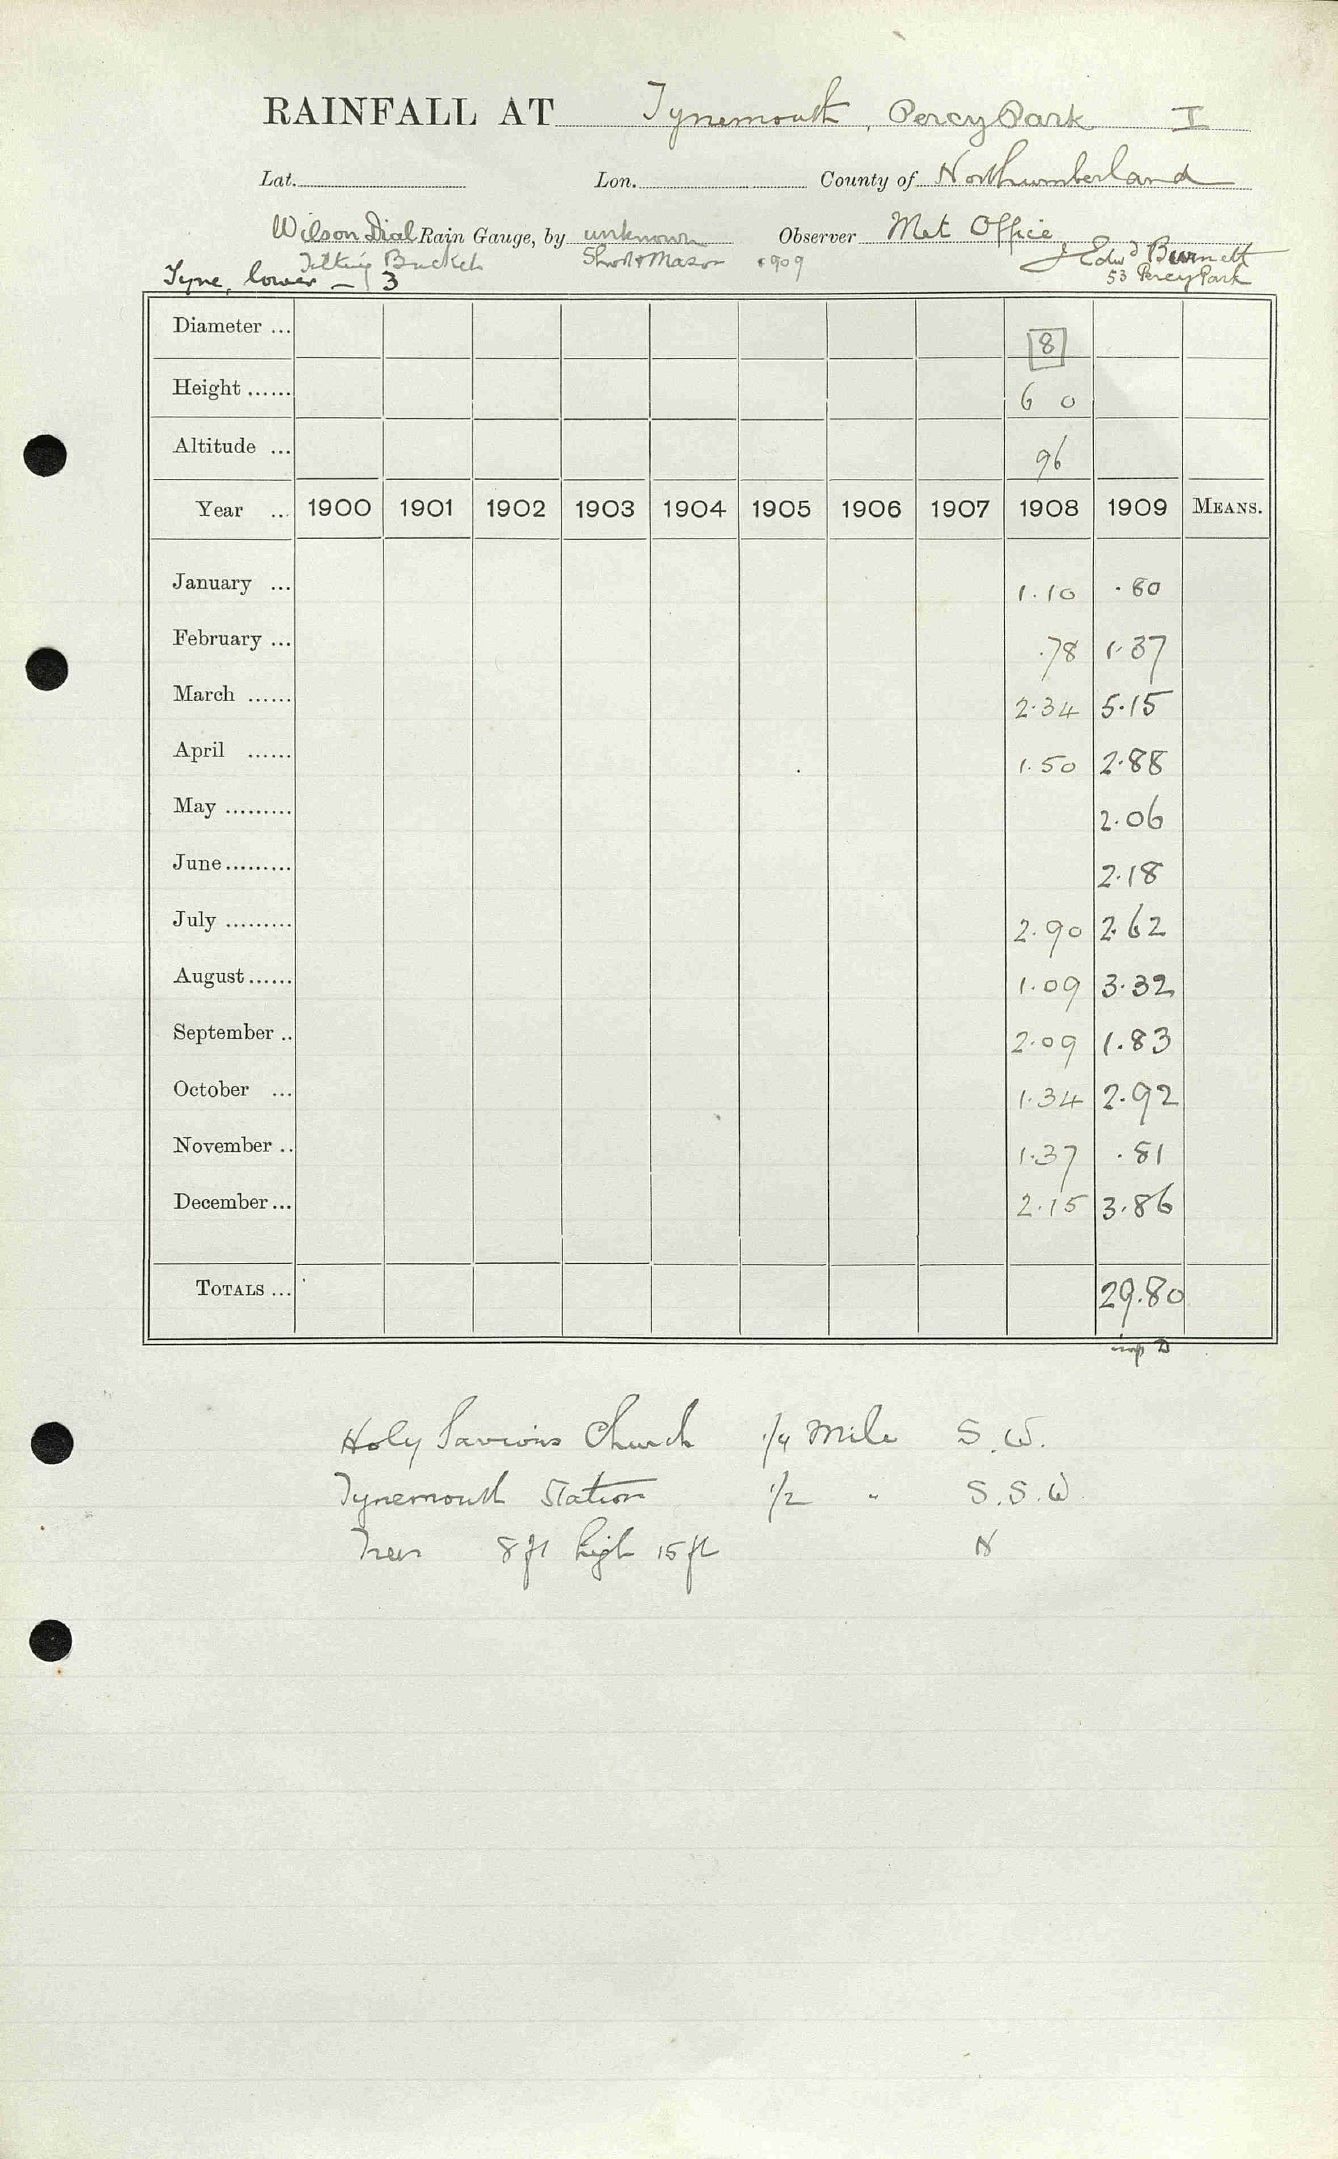 RAINFALL AT Tynemouth, Percy Park I
Lat. Lon. County of Northumberland
Wilson Dial Rain Gauge, by unknown Observer Met Office
Tilting Bucket Short & Mason 1909 J Edwd Burnett
Tyne, lower – 3 53 Percy Park
Diameter ... 8
Height ...... 6 0
Altitude ... 96
Year ... 1900 1901 1902 1903 1904 1905 1906 1907 1908 1909 MEANS.
January ... 1.10 .80
February ... .78 1.37
March ...... 2.34 5.15
April ...... 1.50 2.88
May ......... 2.06
June ......... 2.18
July ......... 2.90 2.62
August ...... 1.09 3.32
September .. 2.09 1.83
October ... 1.34 2.92
November .. 1.37 .81
December ... 2.15 3.86
TOTALS ... 29.80
Holy Saviours Church 1/4 Mile S.W.
Tynemouth Station 1/2 " S.S.W.
Trees 8 ft high 15 ft N